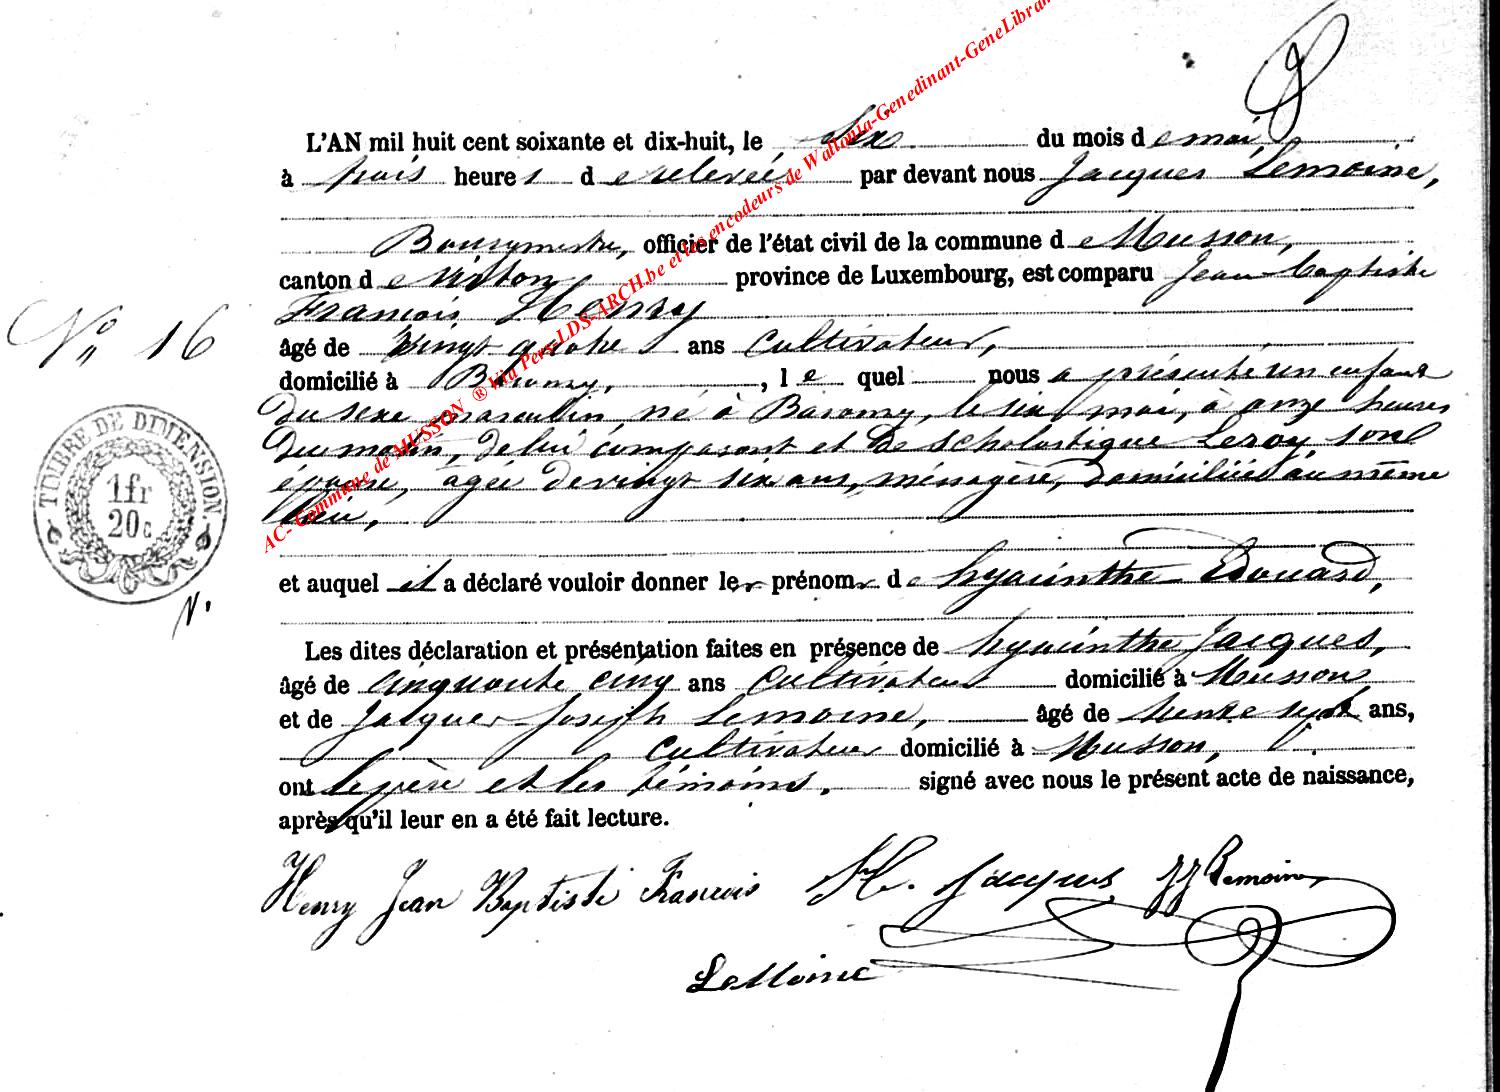 L'AN mil huit cent soixante et dix-huit, le six du mois de mai,
à trois heures de relevée par devant nous Jacques Lemoine,
Bourgmestre, officier de l'état civil de la commune de Musson,
canton de Virton province de Luxembourg, est comparu Jean-Baptiste
François Henry
N° 16
âgé de vingt quatre ans cultivateur,
domicilié à Baranzy, lequel nous a présenté un enfant
du sexe masculin né à Baranzy, le six mai, à onze heures
du matin, de lui comparant et de Scholastique Leroy son
épouse, âgée de vingt six ans, ménagère, domiciliée au même
lieu,
TIMBRE DE DIMENSION
1 fr
20 c
et auquel il a déclaré vouloir donner les prénoms de hyacinthe Edouard,
Les dites déclaration et présentation faites en présence de hyacinthe Jacques,
âgé de cinquante cinq ans cultivateur domicilié à Musson
et de Jacques-Joseph Lemoine, âgé de trente sept ans,
cultivateur domicilié à Musson,
ont le père et les témoins, signé avec nous le présent acte de naissance,
après qu'il leur en a été fait lecture.
Henry Jean Baptiste Francois H. Jacques JJ Lemoine
LeMoine
AC- Commune de MUSSON ® Via Pers-LDS-ARCH.be et les encodeurs de Wallonia-Genedinant-GeneLibran